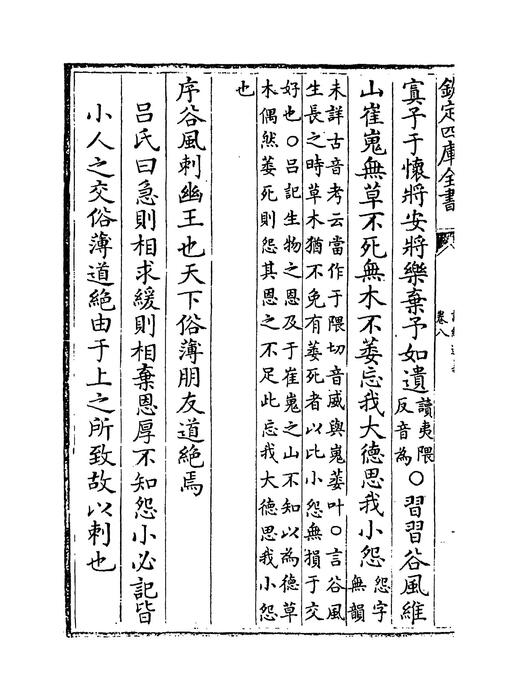 欽定四庫全書
卷八
寘子于懷將安將樂棄予如遺讀夷隈反音為〇習習谷風維
山崔嵬無草不死無木不萎忘我大德思我小怨怨字無韻
未詳古音考云當作于隈切音威與嵬萎叶〇言谷風
生長之時草木猶不免有萎死者以比小怨無損于交
好也〇呂記生物之恩及于崔嵬之山不知以為德草
木偶然萎死則怨其恩之不足此忘我大德思我小怨
也
序谷風刺幽王也天下俗薄朋友道絶焉
呂氏曰急則相求緩則相棄恩厚不知怨小必記皆
小人之交俗薄道絶由于上之所致故以刺也